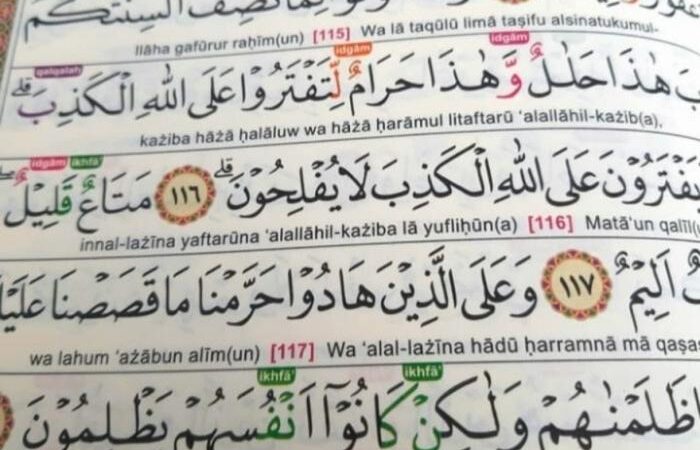 لِمَا تَصِفُ اَلْسِنَتُكُمُ
ilāha gafūrur raḥīm(un) [115] Wa lā taqūlū limā taṣifu alsinatukumul-
qalqalah idgām idgām
هٰذَا حَلٰلٌ وَّهٰذَا حَرَامٌ لِّتَفْتَرُوْا عَلَى اللّٰهِ الْكَذِبَۗ
każiba hāżā ḥalāluw wa hāżā ḥarāmul litaftarū ‘alallāhil-każib(a),
idgām ikhfā'
يَفْتَرُوْنَ عَلَى اللّٰهِ الْكَذِبَ لَا يُفْلِحُوْنَۗ ١١٦ مَتَاعٌ قَلِيْلٌ
innal-lażīna yaftarūna ‘alallāhil-każiba lā yufliḥūn(a) [116] Matā‘un qalīl(u
اَلِيْمٌ ١١٧ وَعَلَى الَّذِيْنَ هَادُوْا حَرَّمْنَا مَا قَصَصْنَا عَلَيْ
wa lahum ‘ażābun alīm(un) [117] Wa ‘alal-lażīna hādū ḥarramnā mā qaṣaṣ
ikhfā' ikhfā'
ظَلَمْنٰهُمْ وَلٰكِنْ كَانُوْٓا اَنْفُسَهُمْ يَظْلِمُوْنَ